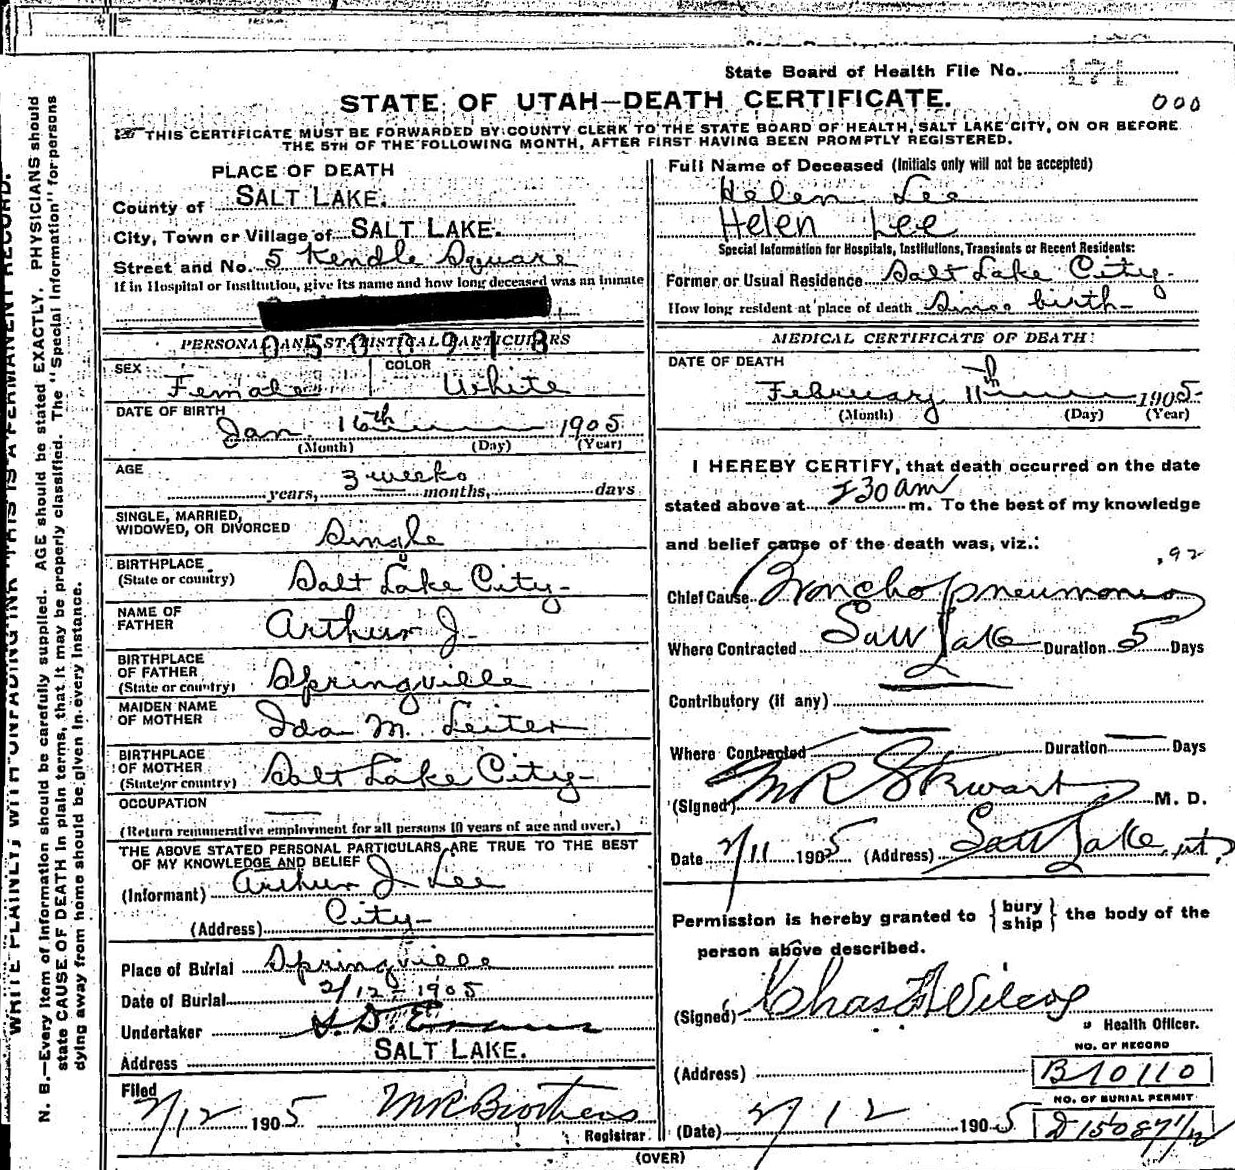 State Board of Health File No. 171
STATE OF UTAH—DEATH CERTIFICATE.
000
THIS CERTIFICATE MUST BE FORWARDED BY COUNTY CLERK TO THE STATE BOARD OF HEALTH, SALT LAKE CITY, ON OR BEFORE
THE 5TH OF THE FOLLOWING MONTH, AFTER FIRST HAVING BEEN PROMPTLY REGISTERED.
WRITE PLAINLY, WITH UNFADING INK THIS IS A PERMANENT RECORD.
N. B.—Every item of information should be carefully supplied. AGE should be stated EXACTLY. PHYSICIANS should
state CAUSE OF DEATH in plain terms, that it may be properly classified. The "Special Information" for persons
dying away from home should be given in every instance.
PLACE OF DEATH
County of SALT LAKE.
City, Town or Village of SALT LAKE.
Street and No. 5 Kendle Square
If in Hospital or Institution, give its name and how long deceased was an inmate
PERSONAL AND STATISTICAL PARTICULARS
SEX Female COLOR White
DATE OF BIRTH
Jan 16th 1905
(Month) (Day) (Year)
AGE 3 weeks
years, months, days
SINGLE, MARRIED,
WIDOWED, OR DIVORCED Single
BIRTHPLACE
(State or country) Salt Lake City
NAME OF
FATHER Arthur J.
BIRTHPLACE
OF FATHER
(State or country) Springville
MAIDEN NAME
OF MOTHER Ida M. Leiter
BIRTHPLACE
OF MOTHER
(State or country) Salt Lake City
OCCUPATION
(Return remunerative employment for all persons 10 years of age and over.)
THE ABOVE STATED PERSONAL PARTICULARS ARE TRUE TO THE BEST
OF MY KNOWLEDGE AND BELIEF
(Informant) Arthur J. Lee
(Address) City
Place of Burial Springville
Date of Burial 2/12-1905
Undertaker S. D. Evans
Address SALT LAKE.
Filed
2/12 1905
Registrar
Full Name of Deceased (Initials only will not be accepted)
Helen Lee
Helen Lee
Special Information for Hospitals, Institutions, Transients or Recent Residents:
Former or Usual Residence Salt Lake City
How long resident at place of death Since birth
MEDICAL CERTIFICATE OF DEATH
DATE OF DEATH
February 11th 1905
(Month) (Day) (Year)
I HEREBY CERTIFY, that death occurred on the date
stated above at 30 am m. To the best of my knowledge
and belief cause of the death was, viz.:
92
Chief Cause Broncho pneumonia
Where Contracted Salt Lake Duration 5 Days
Contributory (if any)
Where Contracted Duration Days
(Signed) M R Stewart M. D.
Date 2/11 1905 (Address) Salt Lake, ut.
Permission is hereby granted to { bury ship } the body of the
person above described.
(Signed) Chas F Wilcox
Health Officer.
NO. OF RECORD
(Address) B10110
NO. OF BURIAL PERMIT
(Date) 2/12 1905 D 15087 1/2
(OVER)